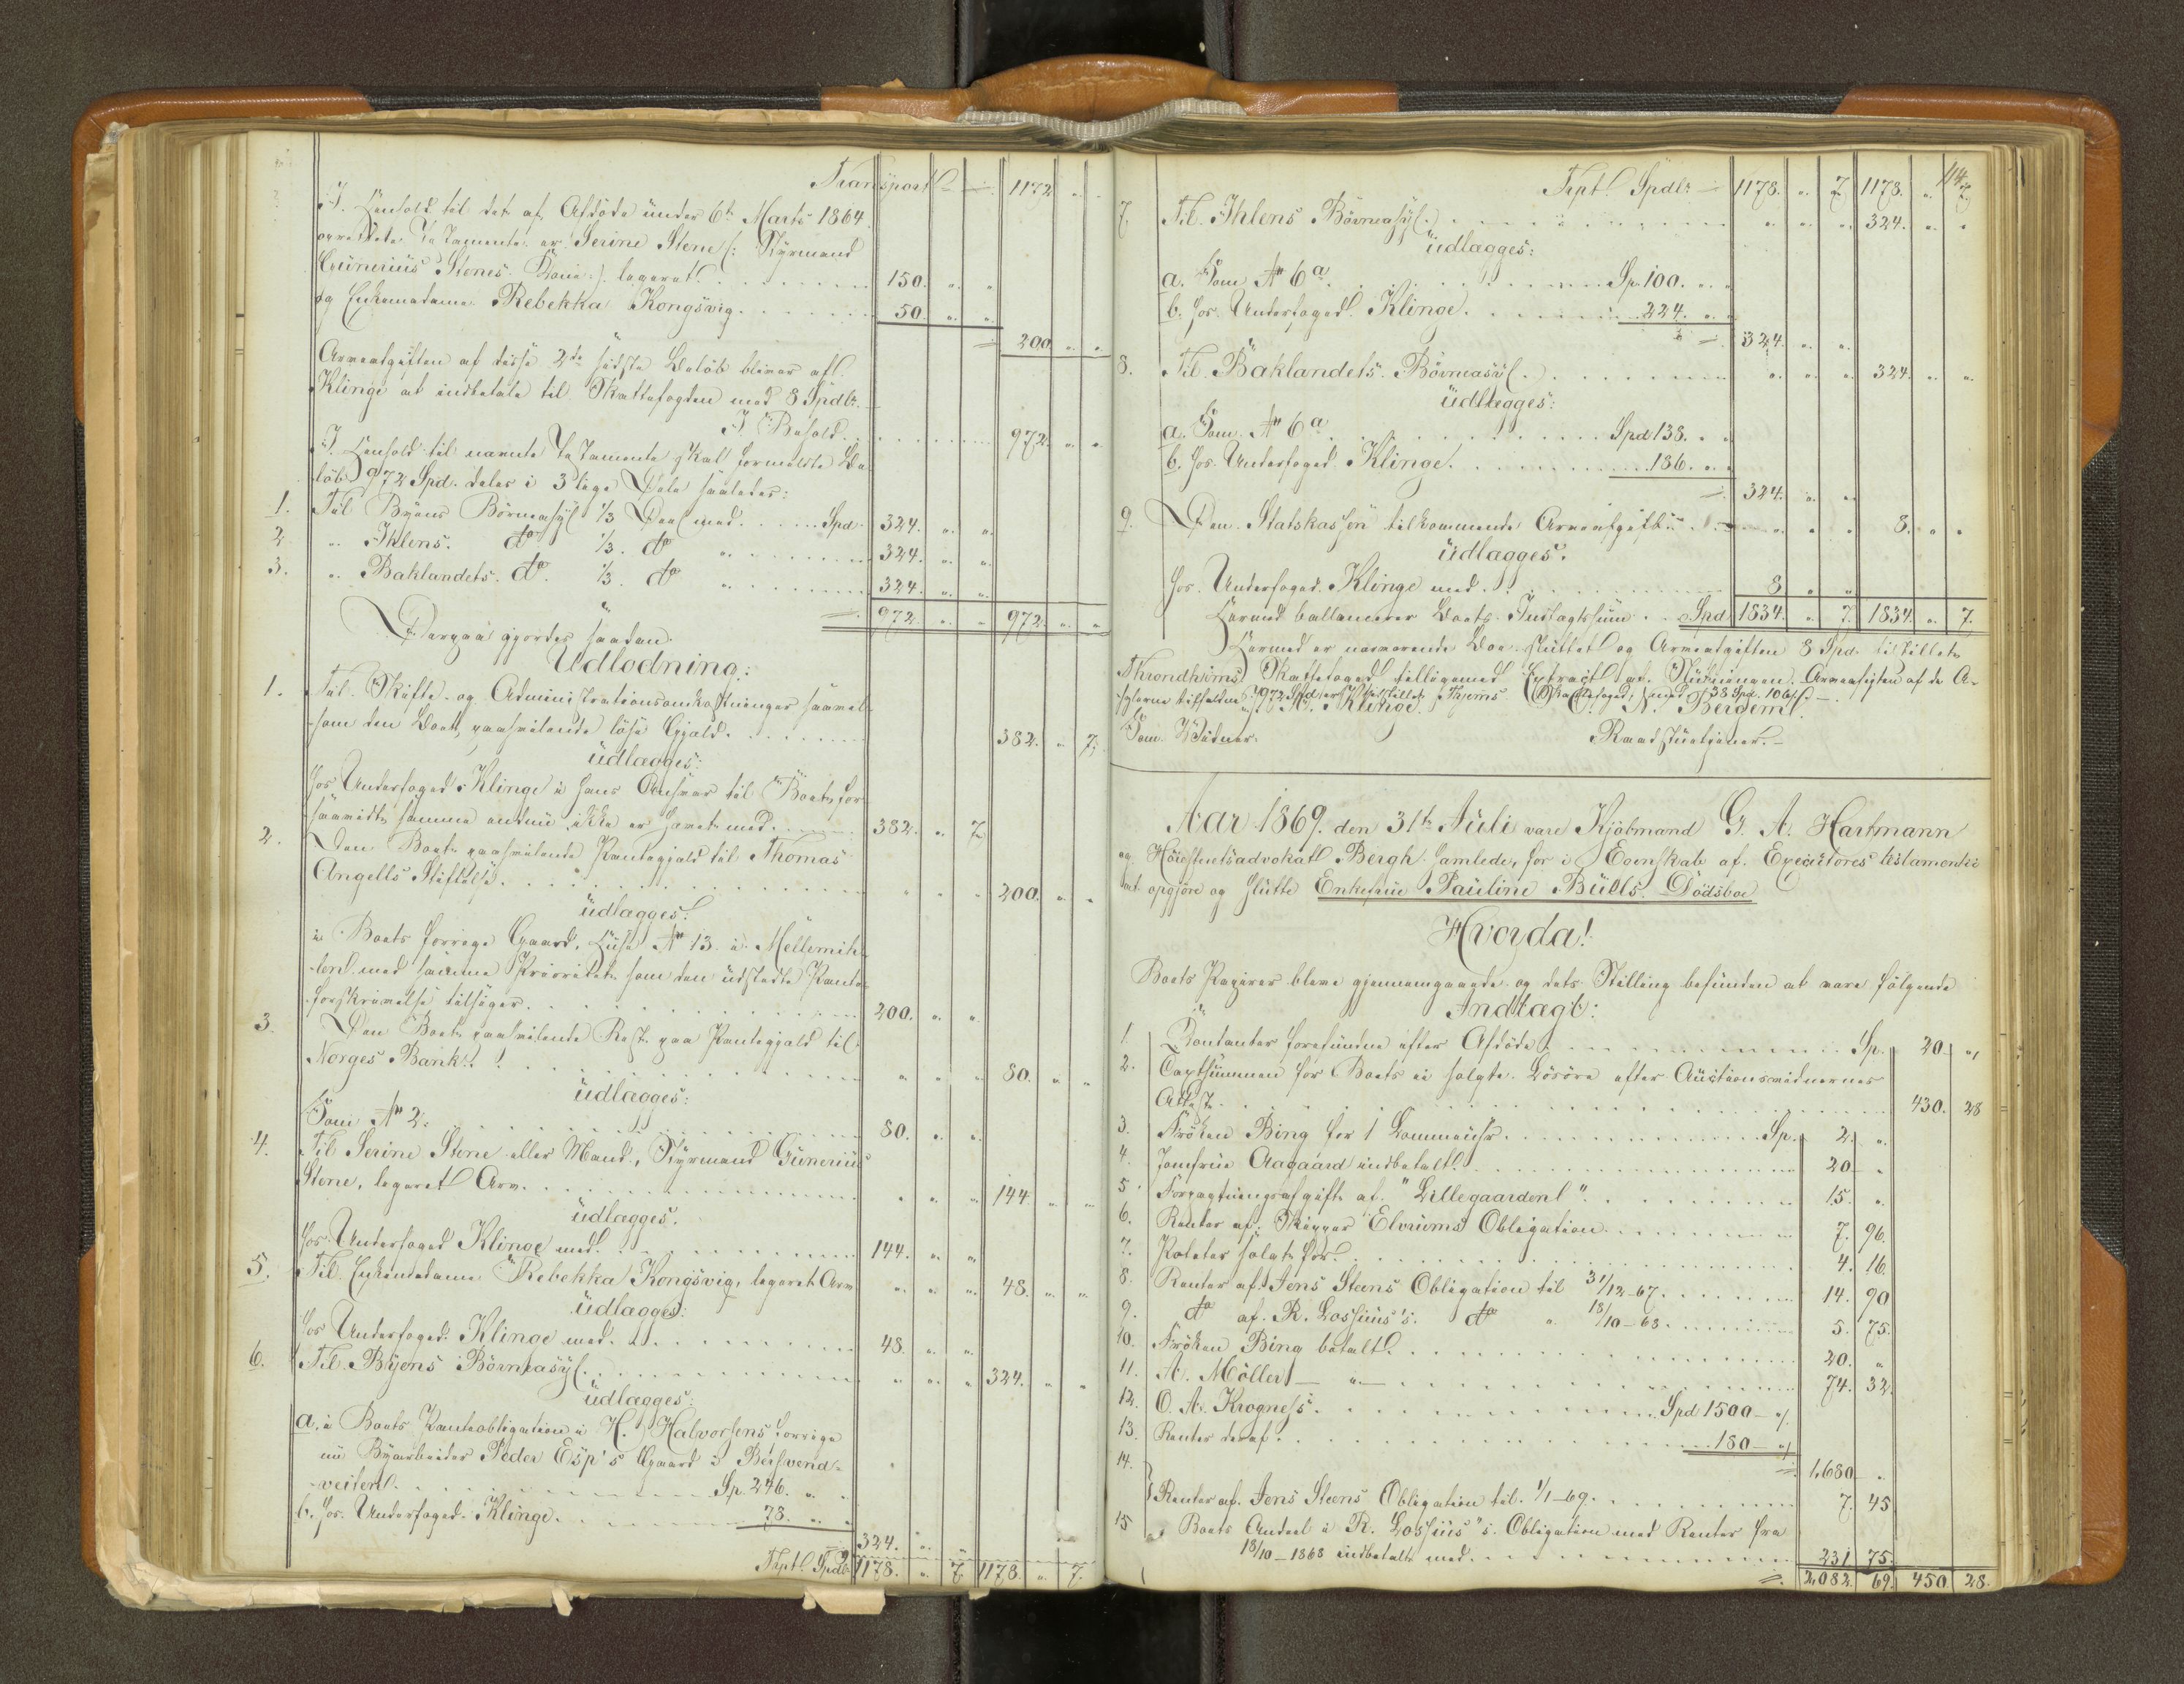 Transport = 1172 „ „
I Henhold til det af Afdøde under 6te Marts 1864
oprettede Testamente er Serine Stene (: Styrmand
Gunerius Stenes Kone :) legeret 150. „ „
og Enkemadame Rebekka Kongsvig 50. „ „
= 200 „ „
Arveafgiften af disse 2de sidste Beløb bliver af
Klinge at indbetale til Skattefogden med 8 Spdlr.
I Behold 972. „ „
I Henhold til nævnte Testamente skal formeldte Be-
løb 972 Spd. deles i 3 lige Dele saaledes:
1. Til Byens Børneasyl 1/3 Deel med Spd. 324. „ „
2. „ Ihlens do 1/3. do „ 324. „ „
3. „ Baklandets do. 1/3. do „ 324. „ „
= 972. „ „ 972. „ „
Derpaa gjordes saadan
Udlodning:
1. Til Skifte- og Administrationsomkostninger saavel
som den Boet paahvilende løse Gjæld 382. „ 7.
udlægges:
hos Underfoged Klinge i hans Ansvar til Boet, for
saavidt samme endnu ikke er hævet med 382. „ 7.
2. Den Boet paahvilende Pantegjæld til Thomas
Angells Stiftelse „ „ „ 200. „ „
udlægges:
i Boets forrige Gaard, Huse No 13 i Mellemih-
len med samme Prioritet som den udstedte Pante-
forskrivelse tilsiger 200. „ „
3. Den Boet paahvilende Rest paa Pantegjæld til
Norges Bank „ „ „ 80. „ „
udlægges:
Som No 2. 80. „ „
4. Til Serine Stene eller Mand, Styrmand Gunerius
Stene, legeret Arv „ „ „ 144 „ „
udlægges.
hos Underfoged Klinge med 144. „ „
5. Til Enkemadame Rebekka Kongsvig, legeret Arv „ „ „ 48. „ „
udlægges:
hos Underfoged Klinge med 48. „ „
6. Til Byens Børneasyl „ „ „ 324. „ „
udlægges:
a. i Boets Panteobligation i H. Halvorsens forrige
nu Byarbeider Peder Esp's Gaard i Bersvend-
veiten Sp. 246. „ „
b. hos Underfoged Klinge 78. „ „
324. „ „
Trpt Spdlr 1178. „ 7. 1178. „ 7.
114
Trpt Spdlr = 1178. „ 7 1178. „ 7.
7. Til Ihlens Børneasyl „ „ „ 324. „ „
udlægges:
a. Som No 6a Sp. 100. „ „
b. hos Underfoged Klinge 224. „ „
= 324. „ „
8. Til Baklandets Børneasyl „ „ „ 324. „ „
udlægges:
a. Som No 6a Spd 138. „ „
b. hos Underfoged Klinge 186. „ „
= 324. „ „
9. Den Statskassen tilkommende Arveafgift „ „ „ 8. „ „
udlægges.
hos Underfoged Klinge med 8 „ „
Herved ballancerer Boets Indtægtsum Spd 1834. „ 7. 1834. „ 7.
Hermed er nærværende Boe sluttet og Arveafgiften 8 Spd. tilstillet
Throndhjems Skattefoged tilligemed Extract af Slutningen. Arveafgiften af de A-
sylerne tilfaldne 972 Spd. er tilstillet Thjems Skattefoged med 38 Spd. 106 s.
A. Klinge. C. N. Bergem
Som Vidner. Raadstuetjener.
Aar 1869. den 31te Juli vare Kjøbmand G. A. Hartmann
og Høiesteretsadvokat Bergh samlede, for i Egenskab af Executores testamenti
at opgjøre og slutte Enkefrue Pauline Bulls Dødsboe
Hvorda!
Boets Papirer bleve gjennemgaaede og dets Stilling befunden at være følgende
Indtægt:
1. Contanter forefundne efter Afdøde Sp. 20 „
2. Captsummen for Boets solgte Løsøre efter Auctionsvidnernes
Attest 430. 28
3. Frøken Bing for 1 Sp. 2. „
4. Jomfrue Aagaard indbetalt 20 „
5. Forpagtningsafgift af "Lillegaarden" 15. „
6. Renter af Skipper Elvrums Obligation 7. 96.
7. Poteter solgt for 4. 16.
8. Renter af Jens Steens Obligation til 31/12-67 14. 90
9. do af R. Lossius's do „ 18/10-68 5. 75.
10. Frøken Bing betalt 20. „
11. A. Møller „ 74. 32.
12. O. A. Krogness Spd 1500 „
13. Renter deraf 180 „
= 1,680 „
14. Renter af Jens Steens Obligation til 1/1-69 7. 45
15. Boets Andeel i R. Lossius's Obligation med Renter fra
18/10-1868 indbetalt med 231 75.
= 2,082. 69. 450 28.